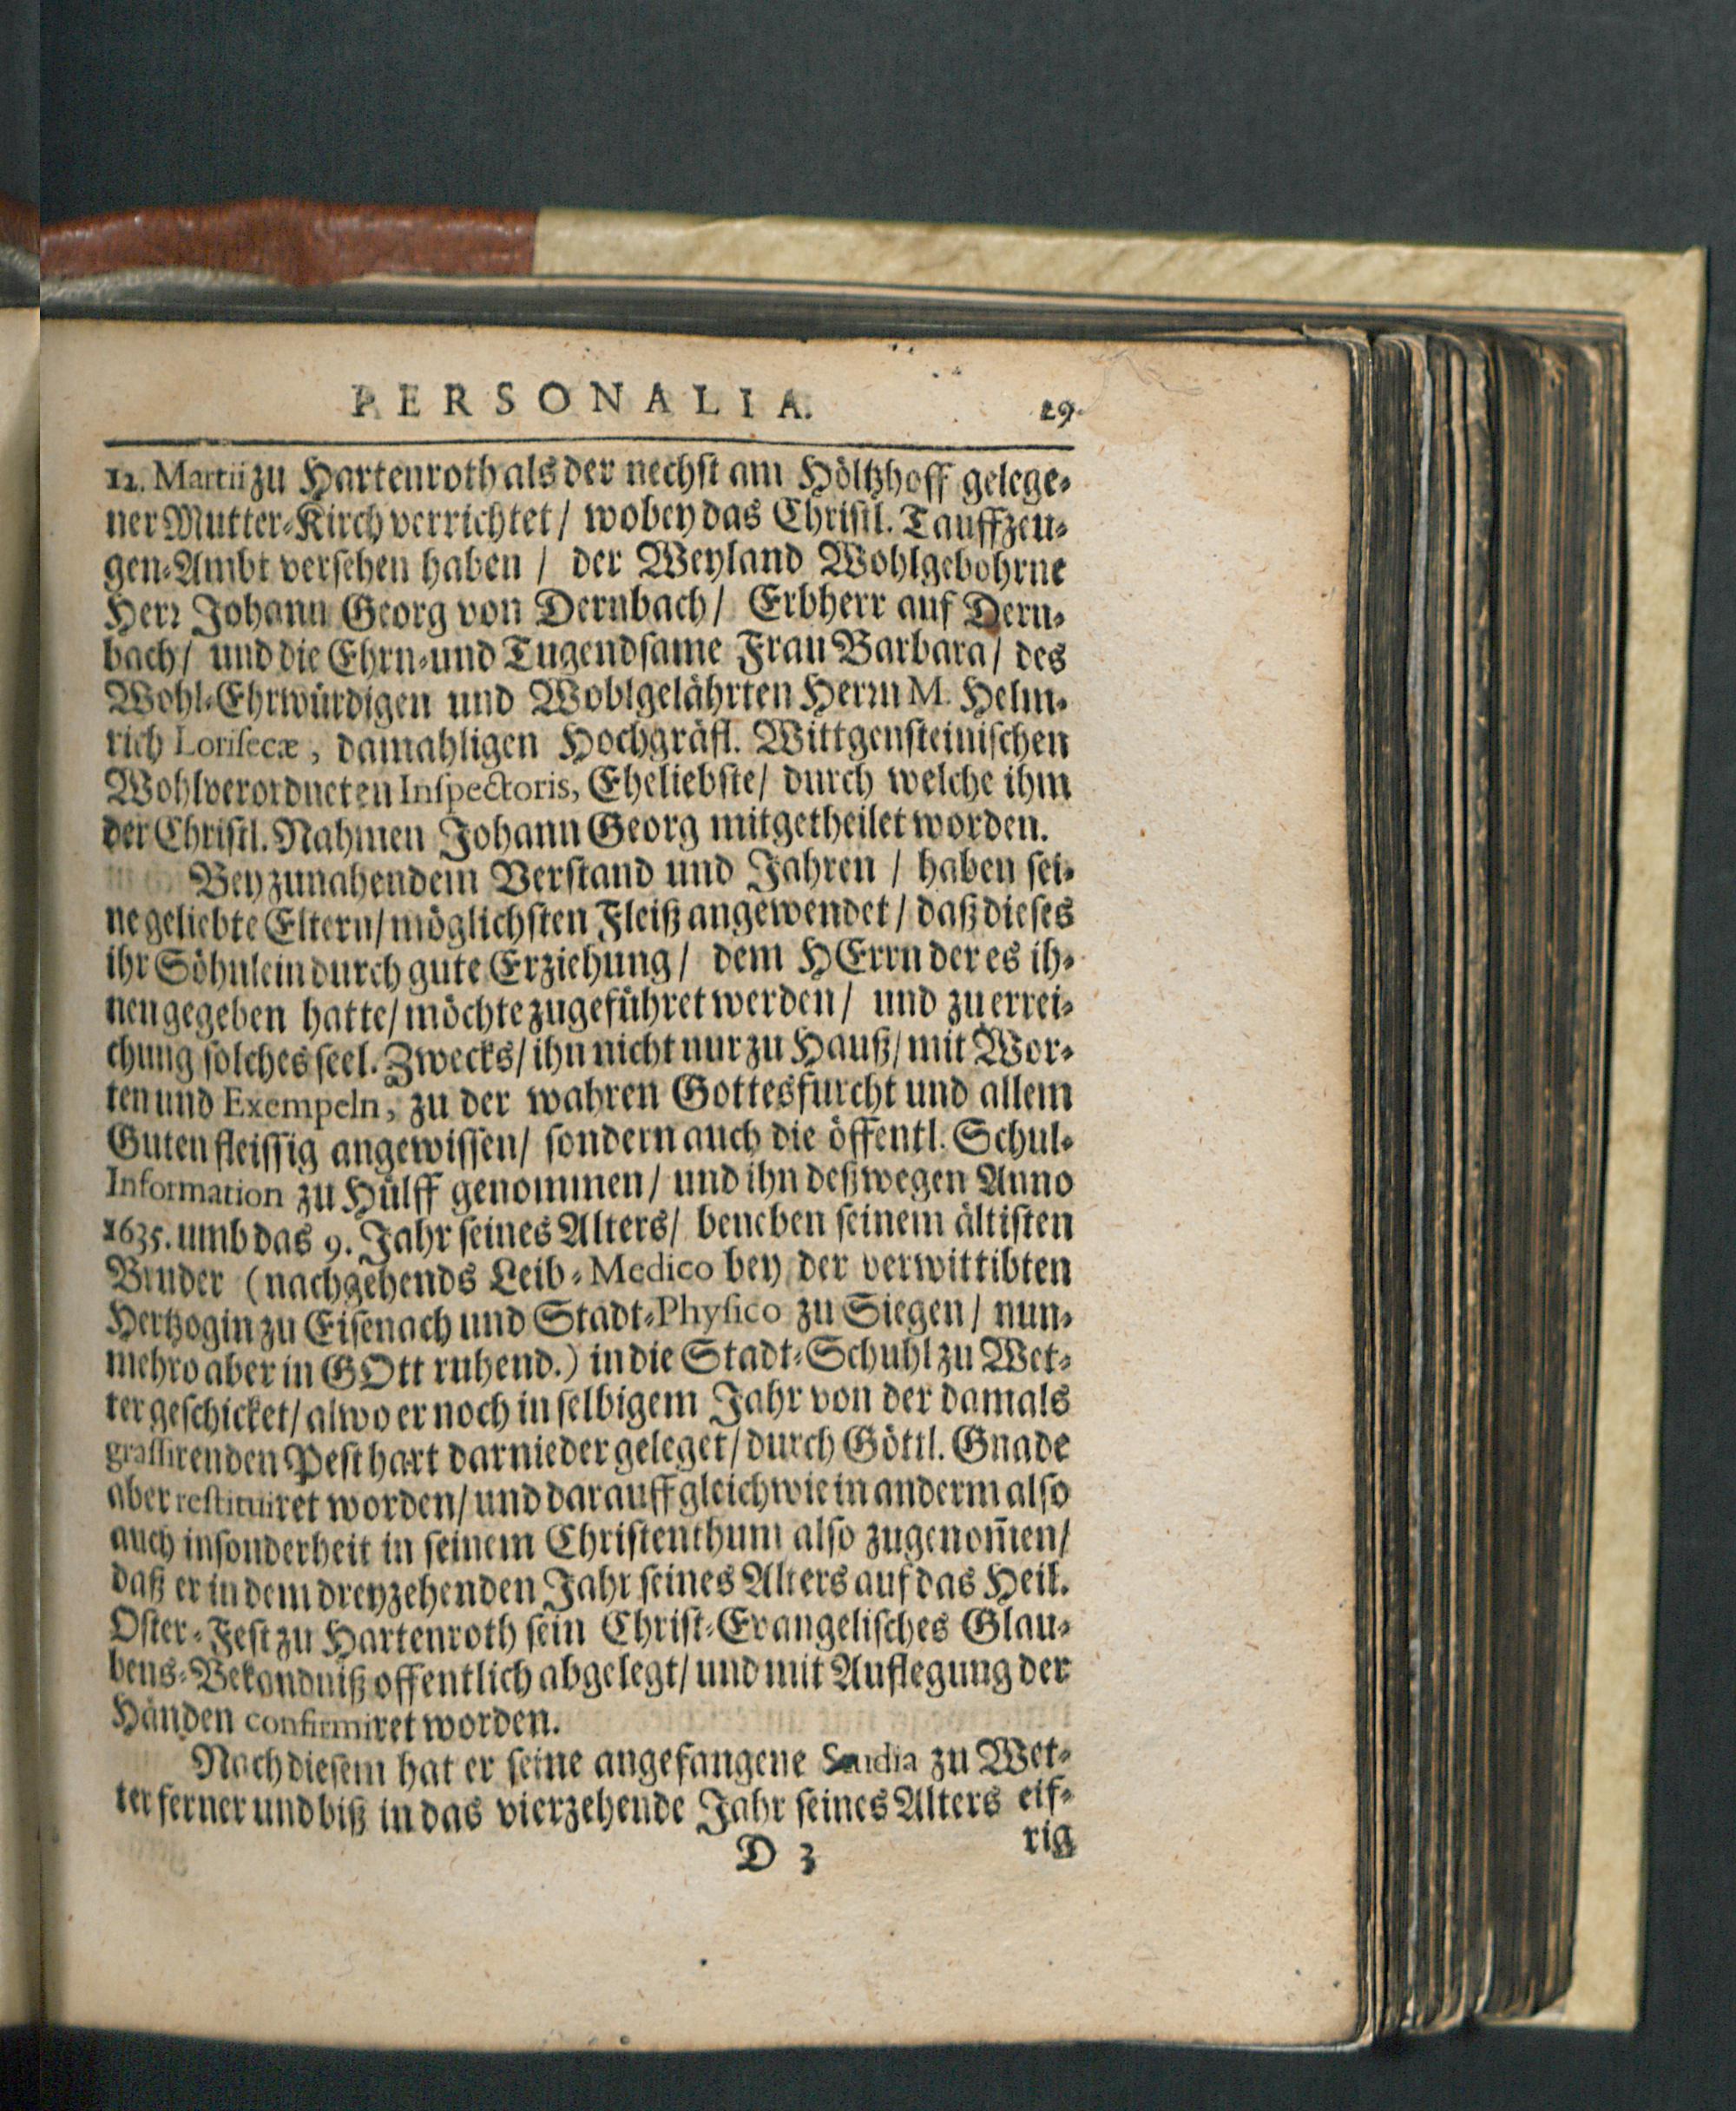 PERSONALIA. 29.
12. Martii zu Hartenroth als der nechst am Höltzhoff gelege-
ner Mutter-Kirch verrichtet / wobey das Christl. Tauffzeu-
gen-Ambt versehen haben / der Weyland Wohlgebohrne
Herr Johann Georg von Dernbach / Erbherr auf Dern-
bach / und die Ehrn-und Tugendsame Frau Barbara / des
Wohl-Ehrwürdigen und Woblgelährten Herrn M. Helm-
rich Lorisecæ, damahligen Hochgräfl. Wittgensteinischen
Wohlverordneten Inspectoris, Eheliebste / durch welche ihm
der Christl. Nahmen Johann Georg mitgetheilet worden.
Bey zunahendem Verstand und Jahren / haben sei-
ne geliebte Eltern / möglichsten Fleiß angewendet / daß dieses
ihr Söhnlein durch gute Erziehung / dem HErrn der es ih-
nen gegeben hatte / möchte zugeführet werden / und zu errei-
chung solches seel. Zwecks / ihn nicht nur zu Hauß / mit Wor-
ten und Exempeln, zu der wahren Gottesfurcht und allem
Guten fleissig angewissen / sondern auch die öffentl. Schul-
Information zu Hülff genommen / und ihn deßwegen Anno
1635. umb das 9. Jahr seines Alters / beneben seinem ältisten
Bruder (nachgehends Leib-Medico bey der verwittibten
Hertzogin zu Eisenach und Stadt-Physico zu Siegen / nun-
mehro aber in GOtt ruhend.) in die Stadt-Schuhl zu Wet-
ter geschicket / alwo er noch in selbigem Jahr von der damals
grassirenden Pest hart darnieder geleget / durch Göttl. Gnade
aber restituiret worden / und darauff gleich wie in anderm also
auch insonderheit in seinem Christenthum also zugenom̃en /
daß er in dem dreyzehenden Jahr seines Alters auf das Heil.
Oster-Fest zu Hartenroth sein Christ-Evangelisches Glau-
bens-Bekandniß offentlich abgelegt / und mit Auflegung der
Händen confirmiret worden.
Nach diesem hat er seine angefangene Studia zu Wet-
ter ferner und biß in das vierzehende Jahr seines Alters eif-
D 3 rig